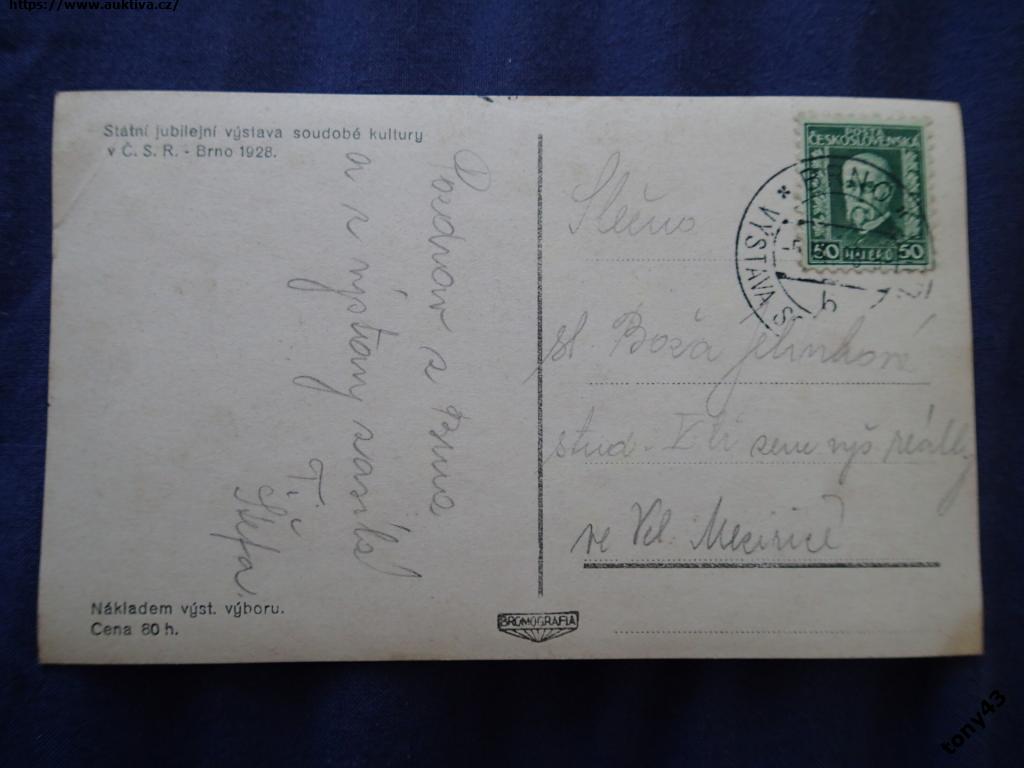 https://www.auktiva.cz/
Státní jubilejní výstava soudobé kultury
v Č. S. R. - Brno 1928.
Pozdrav z Brna
a z výstavy zasílá
Ti
Štefa
Nákladem výst. výboru.
Cena 80 h.
BROMOGRAFIA
POŠTA
ČESKOSLOVENSKÁ
50 HALÉŘŮ 50
* VÝSTAVA
b
Slečno
sl. Boža Jelínková
stud. zem vyš reálky
ve Vel. Meciricě
tony43